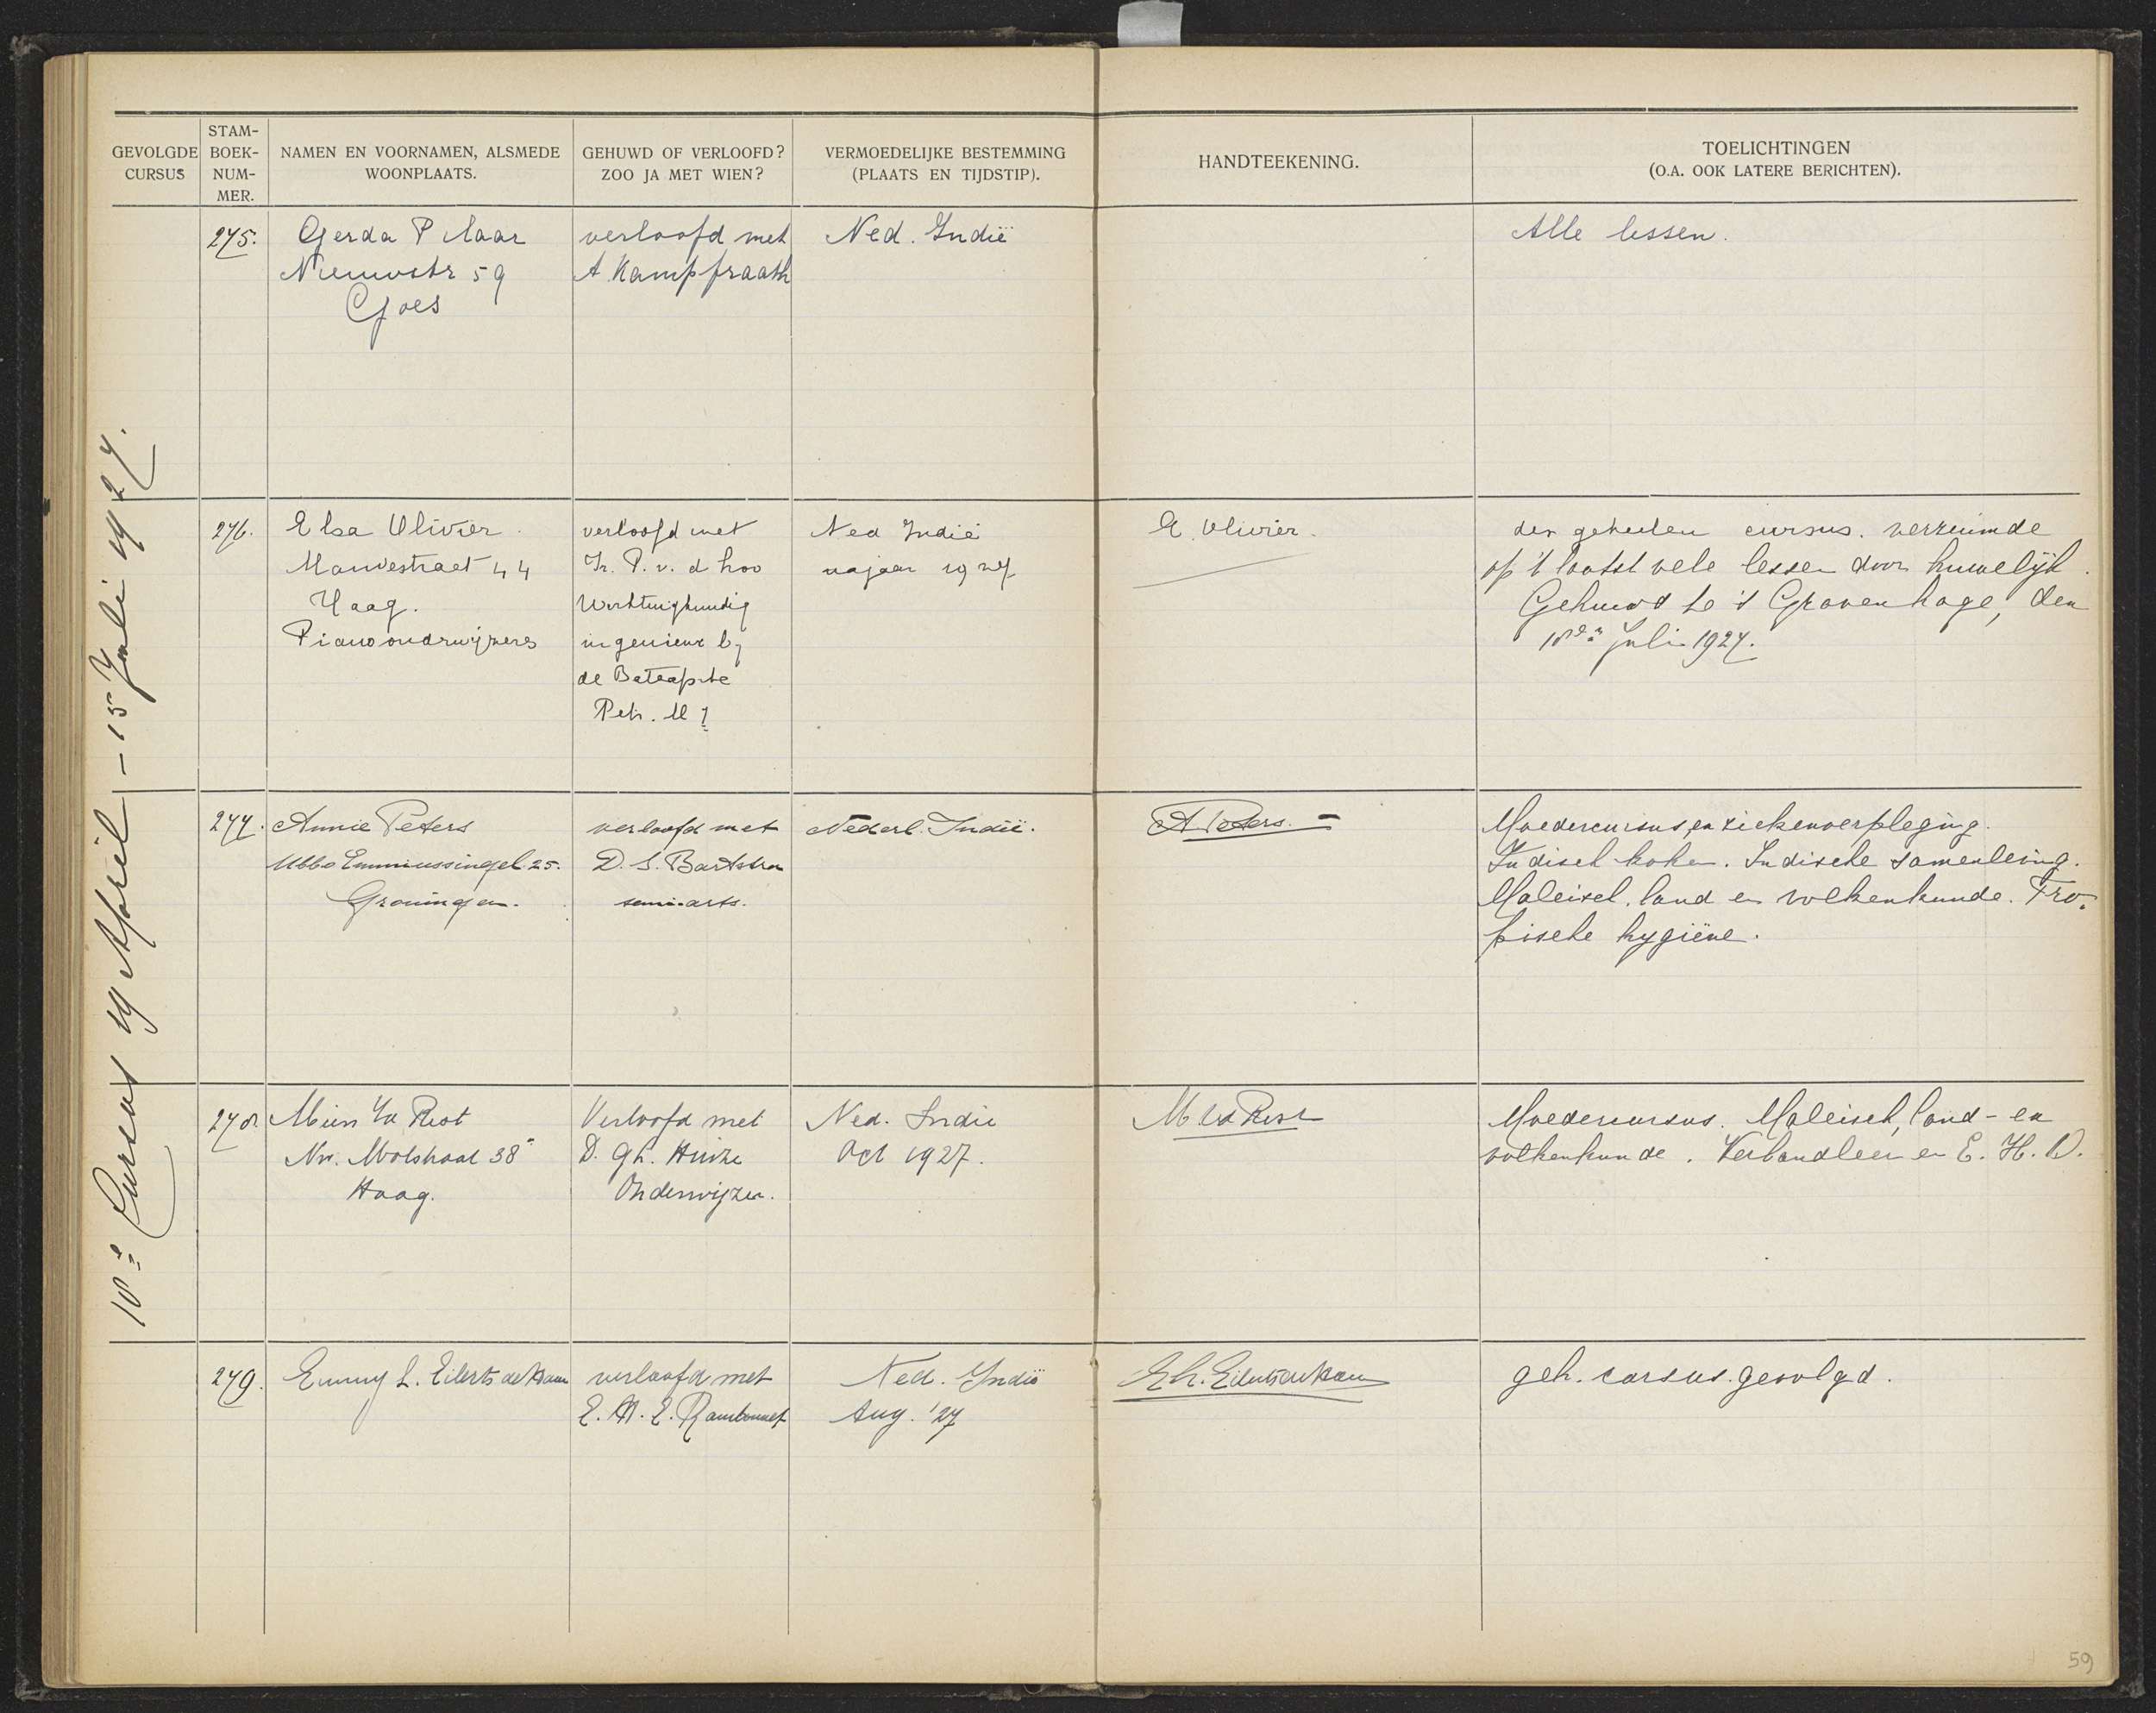 GEVOLGDE CURSUS
STAM-BOEK-NUM-MER.
NAMEN EN VOORNAMEN, ALSMEDE WOONPLAATS.
GEHUWD OF VERLOOFD? ZOO JA MET WIEN?
VERMOEDELIJKE BESTEMMING (PLAATS EN TIJDSTIP).
HANDTEEKENING.
TOELICHTINGEN (O.A. OOK LATERE BERICHTEN).
10e Cursus 19 April - 15 Juli 1927.
275.
Gerda Pilaar
Nieuwstr 59
Goes
verloofd met
A. Kampfraath
Ned. Indië
Alle lessen.
276.
Elsa Olivier.
Mauvestraat 44
Haag.
Pianoonderwijzeres
verloofd met
Ir. P. v. d hoo
Werktuigkundig
ingenieur bij
de Bataafsche
Petr. Mij
Ned Indië
najaar 1927
E. Olivier.
den geheelen cursus. verzuimde
op 't laatst vele lessen door huwelijk.
Gehuwd te 's Gravenhage, den
18en Juli 1927.
277.
Annie Peters
Ubbo Emmiussingel 25.
Groningen.
verloofd met
D. S. Bartstra
semi-arts.
Nederl. Indië.
A Peters.
Moedercursus en ziekenverpleging.
Indisch koken. Indische samenleving.
Maleisch, land en volkenkunde. Tro-
pische hygiëne.
278
Mien v d Rest
Nw. Molstraat 38a
Haag.
Verloofd met
D. Gh. Huize
Onderwijzer.
Ned. Indië
Oct 1927.
M vd Rest
Moedercursus. Maleisch, land- en
volkenkunde. Verbandleer en E. H. O.
279.
Emmy L. Eilerts de Haan
verloofd met
E. A. E. Rambonnet
Ned. Indië
Aug. '27
E L. Eilerts de Haan
geh. cursus gevolgd.
59